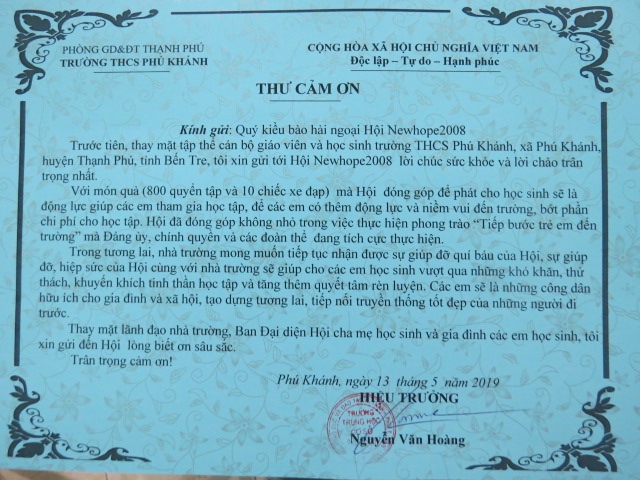 PHÒNG GD&ĐT THẠNH PHÚ
TRƯỜNG THCS PHÚ KHÁNH
CỘNG HÒA XÃ HỘI CHỦ NGHĨA VIỆT NAM
Độc lập – Tự do – Hạnh phúc
THƯ CẢM ƠN
Kính gửi: Quý kiều bào hải ngoại Hội Newhope2008
Trước tiên, thay mặt tập thể cán bộ giáo viên và học sinh trường THCS Phú Khánh, xã Phú Khánh,
huyện Thạnh Phú, tỉnh Bến Tre, tôi xin gửi tới Hội Newhope2008 lời chúc sức khỏe và lời chào trân
trọng nhất.
Với món quà (800 quyển tập và 10 chiếc xe đạp) mà Hội đóng góp để phát cho học sinh sẽ là
động lực giúp các em tham gia học tập, để các em có thêm động lực và niềm vui đến trường, bớt phần
chi phí cho học tập. Hội đã đóng góp không nhỏ trong việc thực hiện phong trào “Tiếp bước trẻ em đến
trường” mà Đảng ủy, chính quyền và các đoàn thể đang tích cực thực hiện.
Trong tương lai, nhà trường mong muốn tiếp tục nhận được sự giúp đỡ quí báu của Hội, sự giúp
đỡ, hiệp sức của Hội cùng với nhà trường sẽ giúp cho các em học sinh vượt qua những khó khăn, thử
thách, khuyến khích tinh thần học tập và tăng thêm quyết tâm rèn luyện. Các em sẽ là những công dân
hữu ích cho gia đình và xã hội, tạo dựng tương lai, tiếp nối truyền thống tốt đẹp của những người đi
trước.
Thay mặt lãnh đạo nhà trường, Ban Đại diện Hội cha mẹ học sinh và gia đình các em học sinh, tôi
xin gửi đến Hội lòng biết ơn sâu sắc.
Trân trọng cảm ơn!
Phú Khánh, ngày 13 tháng 5 năm 2019
HIỆU TRƯỞNG
TRƯỜNG
TRUNG HỌC
CƠ SỞ
Nguyễn Văn Hoàng